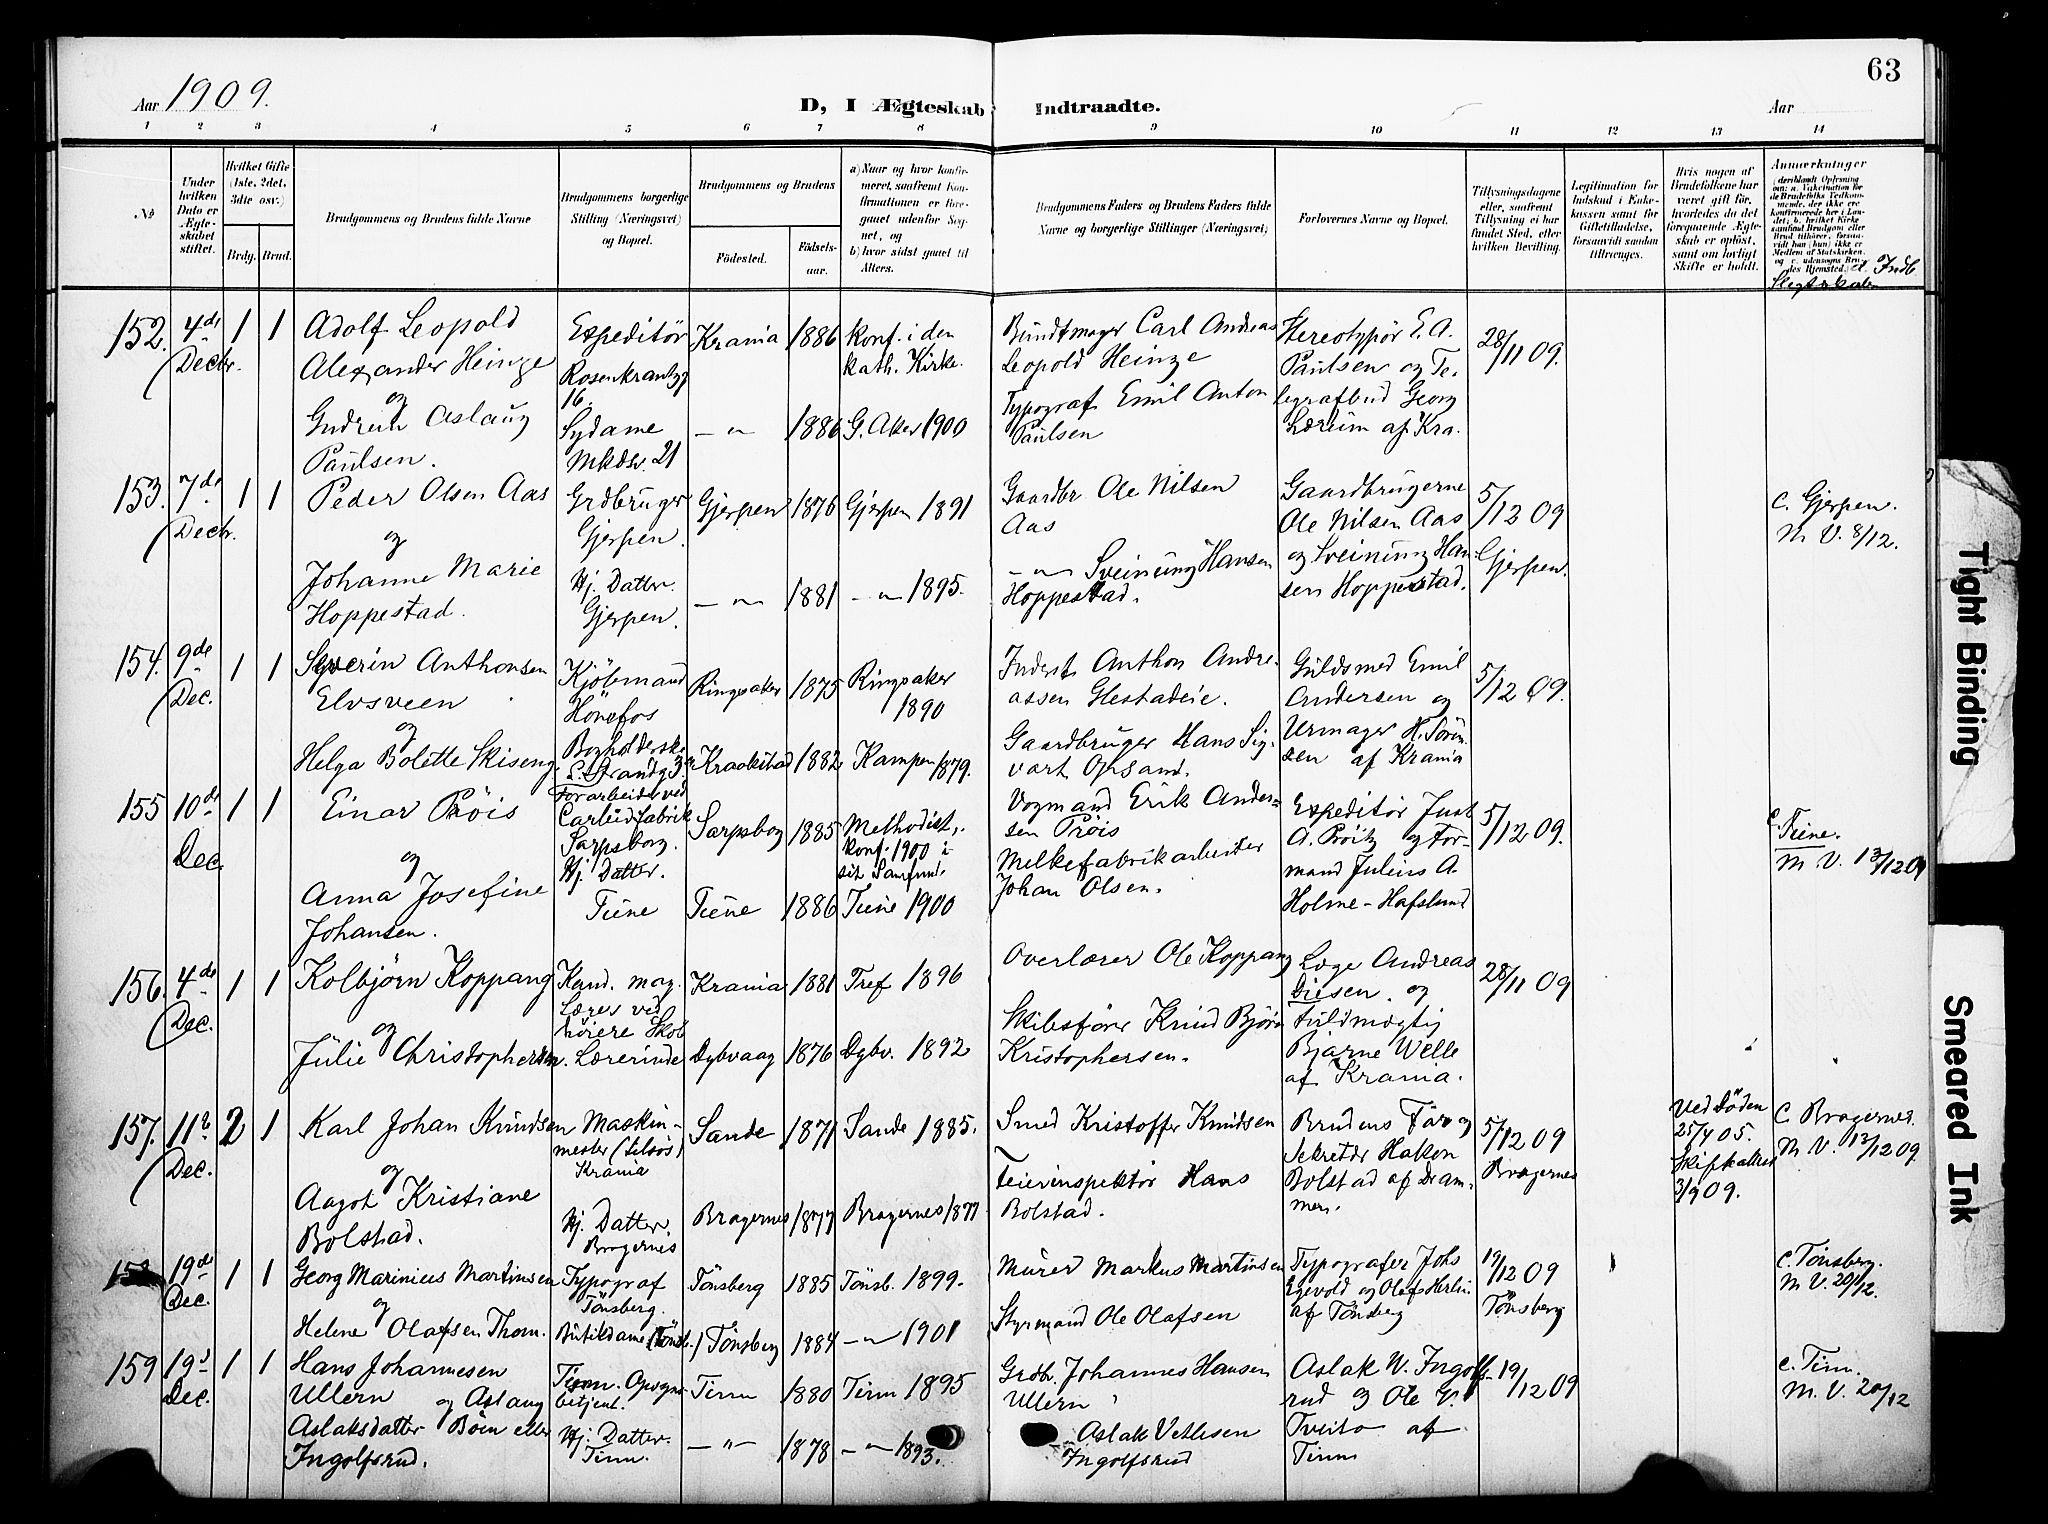 63
Aar 1909.
D, I Ægteskab Indtraadte.
Aar
1 2 3 4 5 6 7 8 9 10 11 12 13 14
No
Under hvilken Dato er Ægteskabet stiftet.
Hvilket Gifte (1ste, 2det, 3dte osv.)
Brdg. Brud.
Brudgommens og Brudens fulde Navne
Brudgommens borgerlige Stilling (Næringsvei) og Bopæl.
Brudgommens og Brudens
Fødested.
Fødselsaar.
a) Naar og hvor konfirmeret, saafremt Konfirmationen er foregaaet udenfor Sognet, og
b) hvor sidst gaaet til Alters.
Brudgommens Faders og Brudens Faders fulde Navne og borgerlige Stillinger (Næringsvei)
Forlovernes Navne og Bopæl.
Tillysningsdagene eller, saafremt Tillysning ei har fundet Sted, efter hvilken Bevilling.
Legitimation for Indskud i Enkekassen samt for Giftetilladelse, forsaavidt saadan tiltrænges.
Hvis nogen af Brudefolkene har været gift før, hvorledes da det foregaaende Ægteskab er opløst, samt om lovligt Skifte er holdt.
Anmerkninger
152. 4de Decbr. 1 1
Adolf Leopold
Alexander Heinze
og
Gudrun Aslaug
Paulsen.
Expeditör
Rosenkrantzg
16.
Sydame
Mkdsv. 21
Krania 1886
konf. i den
kath. Kirke.
— " — 1886 G. Aker 1900
Bundtmager Carl Andreas
Leopold Heinze
Typograf Emil Anton
Paulsen
Stereotypör E. A.
Paulsen og Te-
legrafbud Georg
Lærum af Kra.
28/11 09.
153. 7de Decbr. 1 1
Peder Olsen Aas
og
Johanne Marie
Hoppestad.
Grdbruger
Gjerpen.
Hj. Datter.
Gjerpen.
Gjerpen 1876 Gjerpen 1891
— " — 1881 — " — 1895.
Gaardbr Ole Nilsen
Aas
— " — Sveinung Hansen
Hoppestad.
Gaardbrugerne
Ole Nilsen Aas
og Sveinung Han-
sen Hoppestad.
5/12 09
Gjerpen.
C. Gjerpen.
M. V. 8/12.
154. 9de Dec. 1 1
Severin Anthonsen
Elvsveen
og
Helga Bolette Skiseng.
Kjöbmand
Hönefos
Bogholderske
Ringsaker 1875 Ringsaker
1890
Kraakstad 1882 Kampen 1879.
Inderst Anthon Andre-
assen Glestadeie.
Gaardbruger Hans Sig-
vart Opsand.
Guldsmed Emil
Andersen og
Urmager H. Sören-
sen af Krania
5/12 09.
155 10de Dec. 1 1
Einar Pröis
og
Anna Josefine
Johansen.
Forarbeider ved
Carbidfabrik
Sarpsborg.
Hj. Datter.
Tune
Sarpsborg 1885 Methodist,
konf. 1900 i
sit Samfund.
Tune 1886 Tune 1900
Vogmand Erik Ander-
sen Pröis
Melkefabrikarbeider
Johan Olsen.
Expeditör Just
A. Pröitz og For-
mand Julius A.
Holme - Hafslund
5/12 09.
C. Tune.
M. V. 13/12 09
156. 4de Dec. 1 1
Kolbjörn Koppang
og
Julie Christophersen.
Kand. mag.
Lærer ved
höiere Skol
Lærerinde
Krania 1881 Tref 1896
Dybvaag 1876 Dybv. 1892
Overlærer Ole Koppang
Skibsförer Knud Björn
Kristophersen.
Læge Andreas
Diesen. og
fuldmægtig
Bjarne Welle
af Krania.
28/11 09
157. 11te Dec. 2 1
Karl Johan Knudsen
og
Aagot Kristiane
Bolstad.
Maskin-
mester (tilsös)
Krania
Hj. Datter
Bragernes
Sande 1871 Sande 1885.
Bragernes 1877 Bragernes 1877
Smed Kristoffer Knudsen
Feierinspektör Hans
Bolstad.
Brudens Far og
Sekretær Hakon
Bolstad af Dram-
men.
5/12 09
Bragernes
Ved Döden
25/4 05.
Skifteattest
3/9 09.
C. Bragernes.
M. V. 13/12 09
158 19de Dec. 1 1
Georg Marinius Martinsen
og
Helene Olafsen Thom.
Typograf
Tönsberg.
Butikdame (Tönsb.)
Tönsberg 1885 Tönsb. 1899.
Tönsberg 1884 — " — 1901
Murer Markus Martinsen
Styrmand Ole Olafsen
Typografer Johs
Egevold og Olaf Herlin
af Tönsberg
19/12 09
Tönsberg
C. Tönsberg.
M. V. 20/12.
159 19de Dec. 1 1
Hans Johannesen
Ullern og Aslaug
Aslaksdatter Böen eller
Ingolfsrud.
Tinn. Opsyns-
betjent.
Hj. Datter.
Tinn.
Tinn 1880 Tinn 1895
— " — 1878 — " — 1893.
Grdbr. Johannes Hansen
Ullern
Aslak Vetlesen
Ingolfsrud
Aslak W. Ingolfs-
rud og Ole V.
Tveito af
Tinn
19/12 09
C. Tinn.
M. V. 20/12
Tight Binding
Smeared Ink